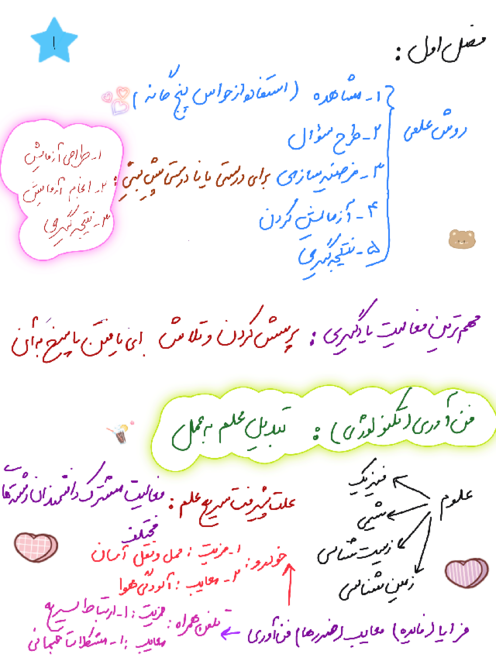 ۱
فصل اول :
روش علمی
۱- مشاهده (استفاده از حواس پنج گانه)
۲- طرح سؤال
۳- فرضیه سازی برای درستی یا نادرستی پیش بینی :
۴- آزمایش کردن
۵- نتیجه گیری
۱- طراحی آزمایش
۲- انجام آزمایش
۳- نتیجه گیری
مهم ترین فعالیت یادگیری : پرسش کردن و تلاش برای یافتن پاسخ به آن
فن آوری (تکنولوژی) : تبدیل علم به عمل
علوم
فیزیک
شیمی
زیست شناسی
زمین شناسی
علت پیشرفت سریع علم : فعالیت مشترک دانشمندان رشته های
مختلف
مزایا (فایده) معایب (ضررها) فن آوری
خودرو :
۱- مزیت : حمل و نقل آسان
۲- معایب : آلودگی هوا
تلفن همراه :
مزیت : ۱- ارتباط سریع
معایب : ۱- مشکلات جسمانی